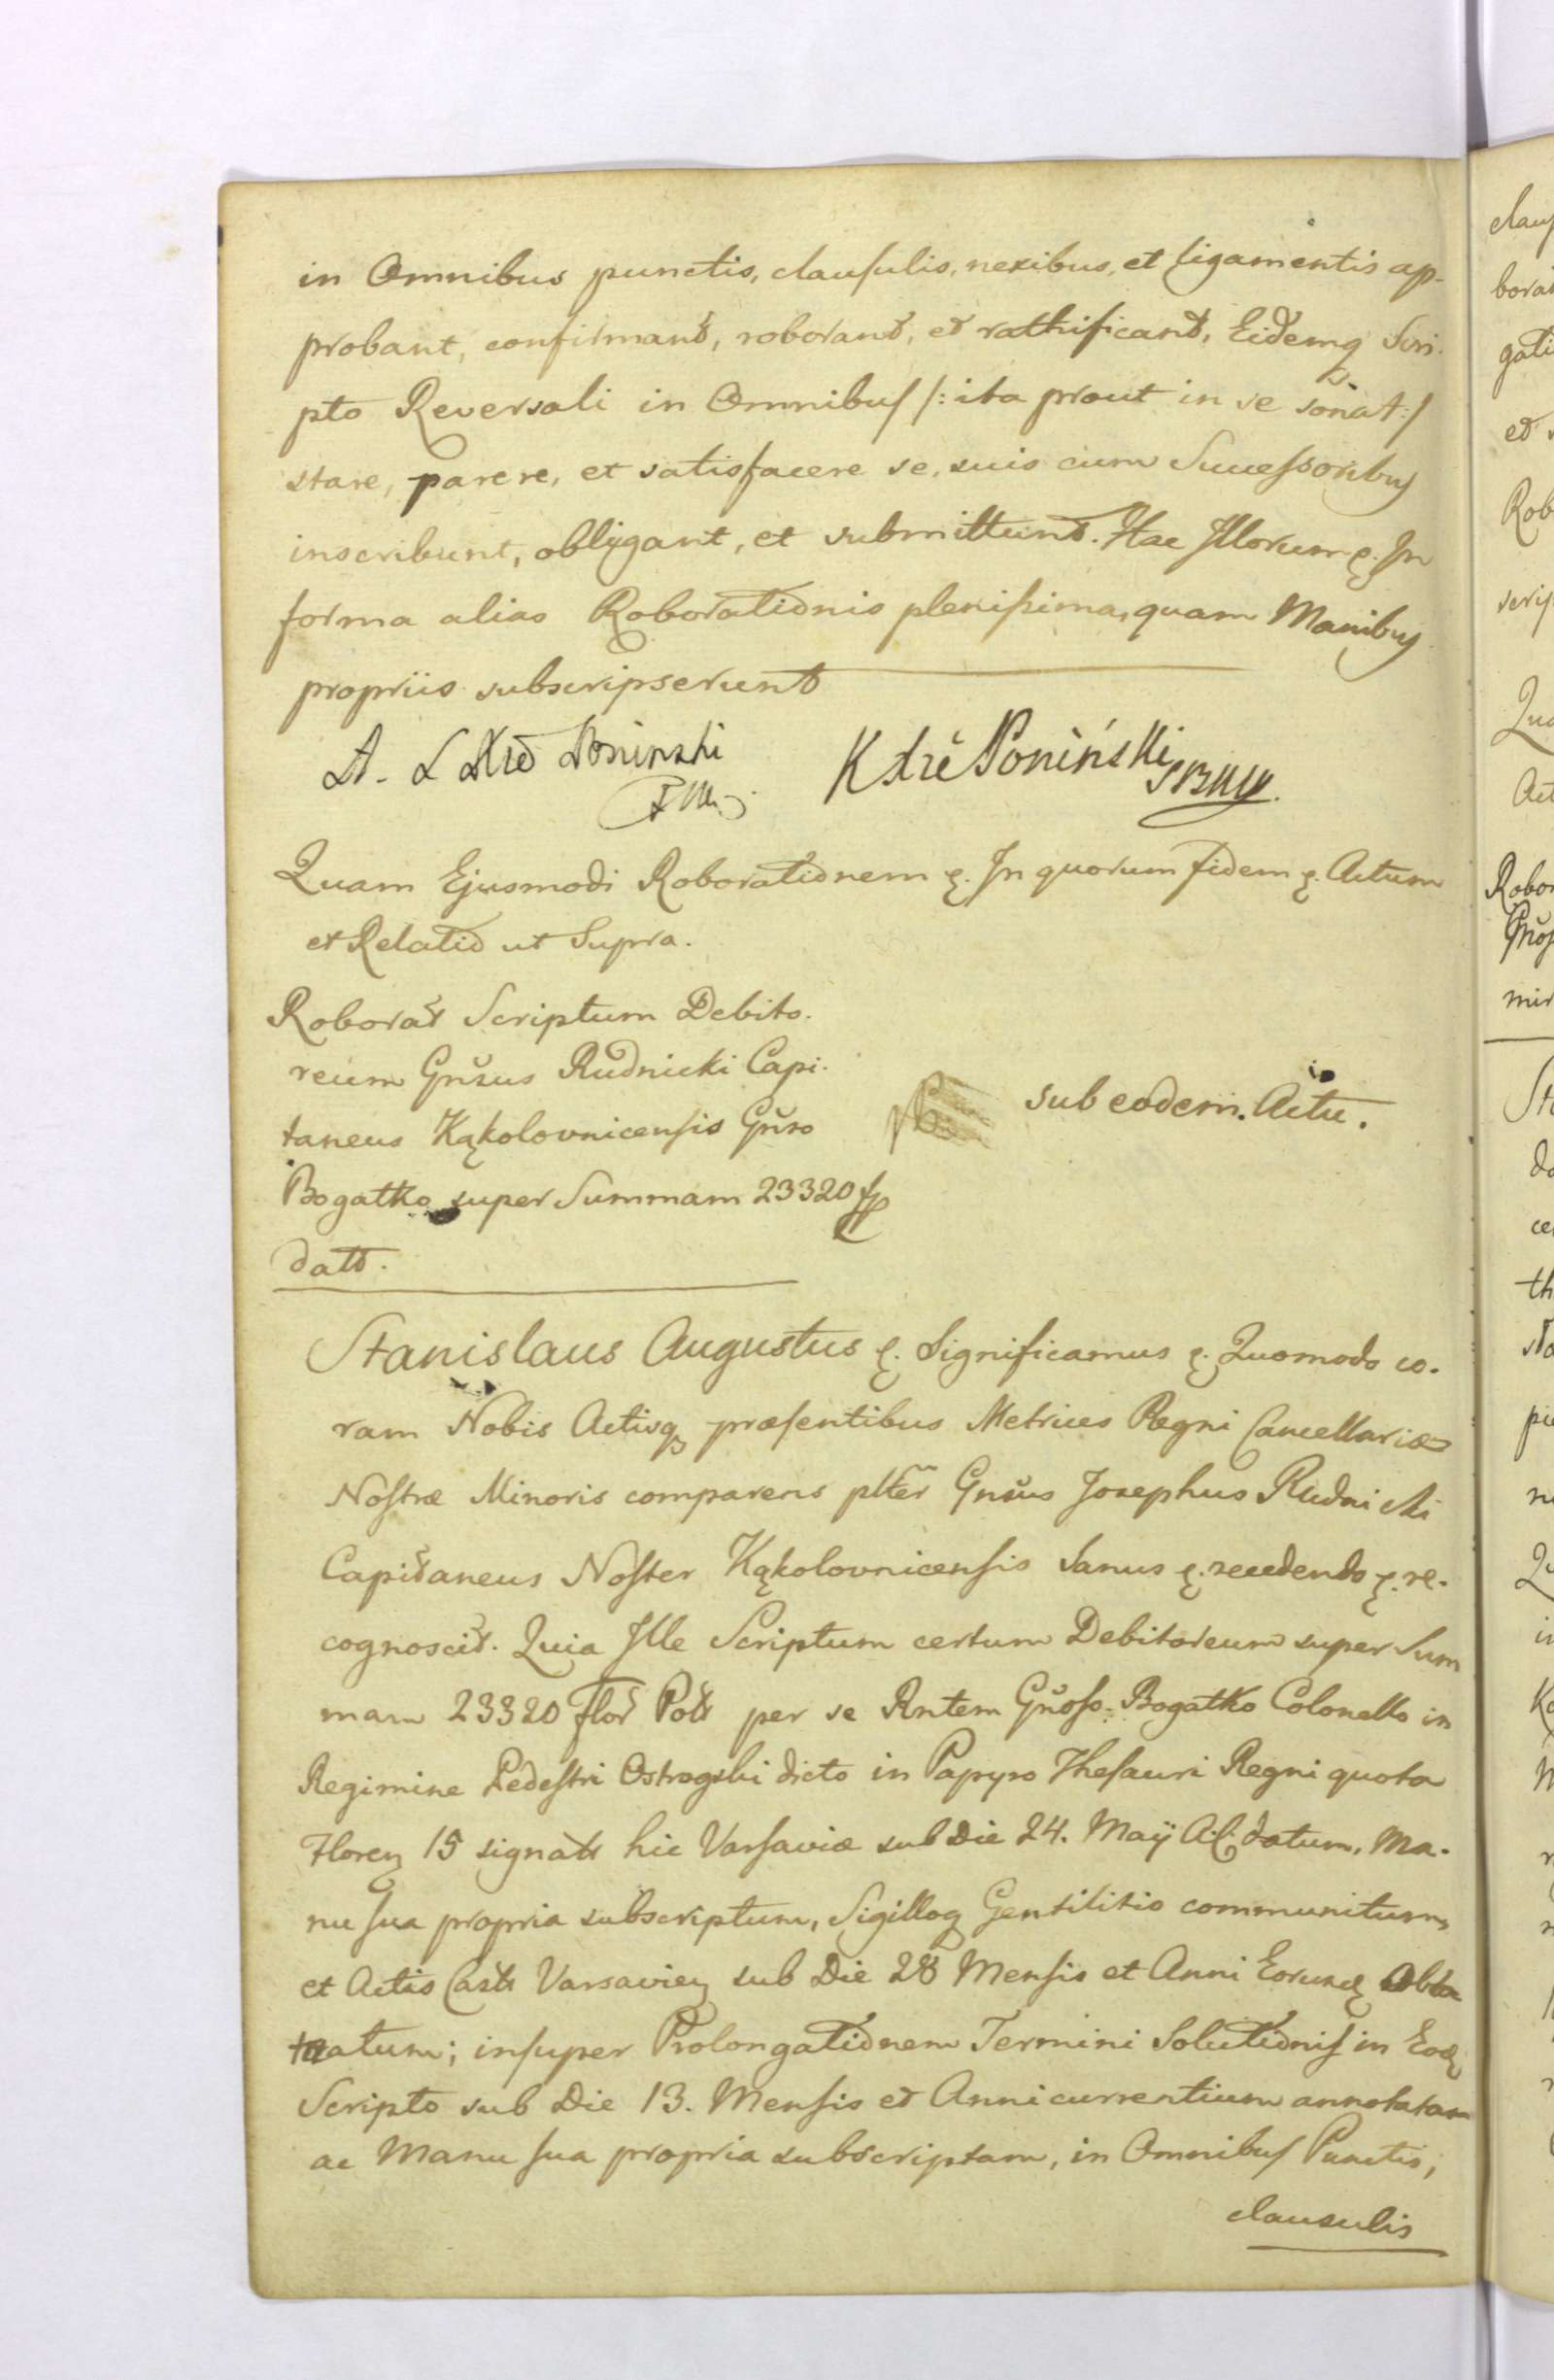 in Omnibus punctis, clausulis, nexibus, et ligamentis ap-
probant, confirmant, roborant, et rathificant, Eidemq Scri-
pto Reversali in Omnibus /: ita prout in se sonat :/
stare, parere, et satisfacere se, suis cum Successoribus
inscribunt, obligant, et submittunt. Hac Illorum ę. In
forma alias Roborationis plenissima, quam Manibus
propriis subscripserunt
A. L Xże Poninski
K Xże Poniński
Quam Ejusmodi Roborationem ę. In quorum fidem ę. Actum
et Relatio ut Supra.
Roborat Scriptum Debito-
reum Gnsus Rudnicki Capi-
taneus Kąkolovnicensis Gnso
Bogatko super Summam 23320 fp
datt.
sub eodem Actu.
Stanislaus Augustus ę. Significamus ę. Quomodo co-
ram Nobis Actisq præsentibus Metrices Regni Cancellariæ
Nostræ Minoris comparens plter Gnsus Josephus Rudnicki
Capitaneus Noster Kąkolovnicensis Sanus ę. recedendo ę. re-
cognoscit. Quia Ille Scriptum certum Debitoreum super Sum
mam 23320 flor Poll per se Rntem Gnoso Bogatko Colonello in
Regimine Pedestri Ostrogski dicto in Papyro Thesauri Regni quota
Floren 15 signatt hic Varsaviæ sub Die 24. Maÿ A. C. datum, Ma-
nu sua propria subscriptum, Sigilloq Gentilitio communitum,
et Actis Castr Varsavien sub Die 28 Mensis et Anni Eorund Obla
tatum; insuper Prolongationem Termini Solutionis in Eod
Scripto sub Die 13. Mensis et Anni currentium annotatam
ac Manu sua propria subscriptam, in Omnibus Punctis,
clausulis